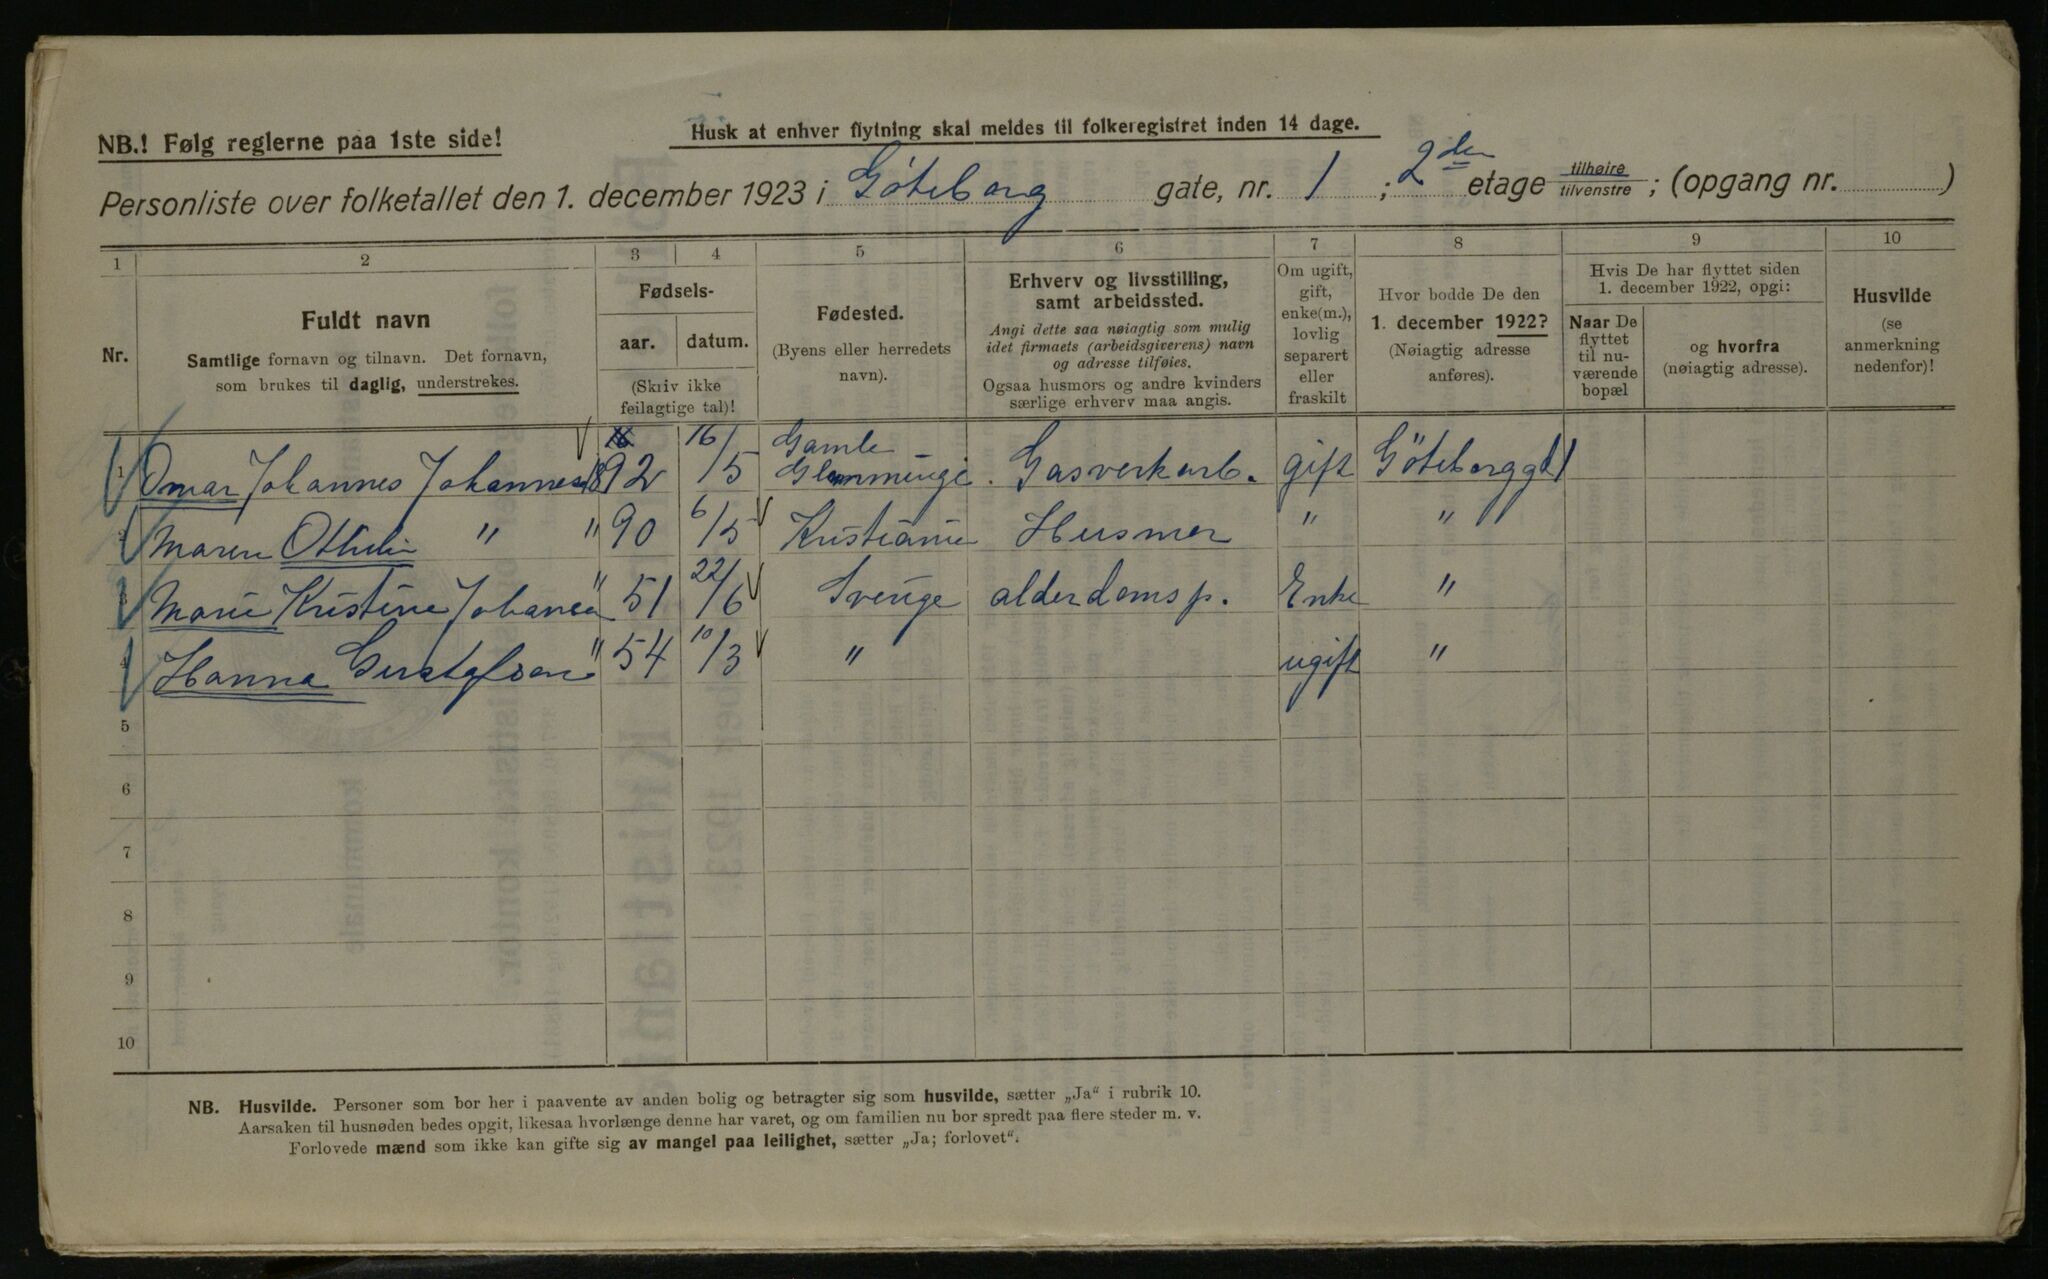 NB.! Følg reglerne paa 1ste side!
Husk at enhver flytning skal meldes til folkeregistret inden 14 dage.
Personliste over folketallet den 1. december 1923 i Göteborg gate, nr. 1 ; 2den etage tilhøire/tilvenstre ; (opgang nr. )
1 2 3 4 5 6 7 8 9 10
Nr.
Fuldt navn
Samtlige fornavn og tilnavn. Det fornavn,
som brukes til daglig, understrekes.
Fødsels-
aar. datum.
(Skriv ikke
feilagtige tal)!
Fødested.
(Byens eller herredets
navn).
Erhverv og livsstilling,
samt arbeidssted.
Angi dette saa nøiagtig som mulig
idet firmaets (arbeidsgiverens) navn
og adresse tilføies.
Ogsaa husmors og andre kvinders
særlige erhverv maa angis.
Om ugift,
gift,
enke(m.),
lovlig
separert
eller
fraskilt
Hvor bodde De den
1. december 1922?
(Nøiagtig adresse
anføres).
Hvis De har flyttet siden
1. december 1922, opgi:
Naar De
flyttet
til nu-
værende
bopæl
og hvorfra
(nøiagtig adresse).
Husvilde
(se
anmerkning
nedenfor)!
1 Omar Johannes Johannes 1892 16/5 Gamle Glemminge. Gasverkarb. gift Göteborggt 1
2 Maren Othelie " " 90 6/5 Kristiania Husmor " "
3 Marie Kristine Johansen " 51 22/6 Sverige alderdomsp. Enke "
4 Hanna Gustafson " 54 10/3 " ugift "
5
6
7
8
9
10
NB. Husvilde. Personer som bor her i paavente av anden bolig og betragter sig som husvilde, sætter „Ja“ i rubrik 10.
Aarsaken til husnøden bedes opgit, likesaa hvorlænge denne har varet, og om familien nu bor spredt paa flere steder m. v.
Forlovede mænd som ikke kan gifte sig av mangel paa leilighet, sætter „Ja; forlovet“.